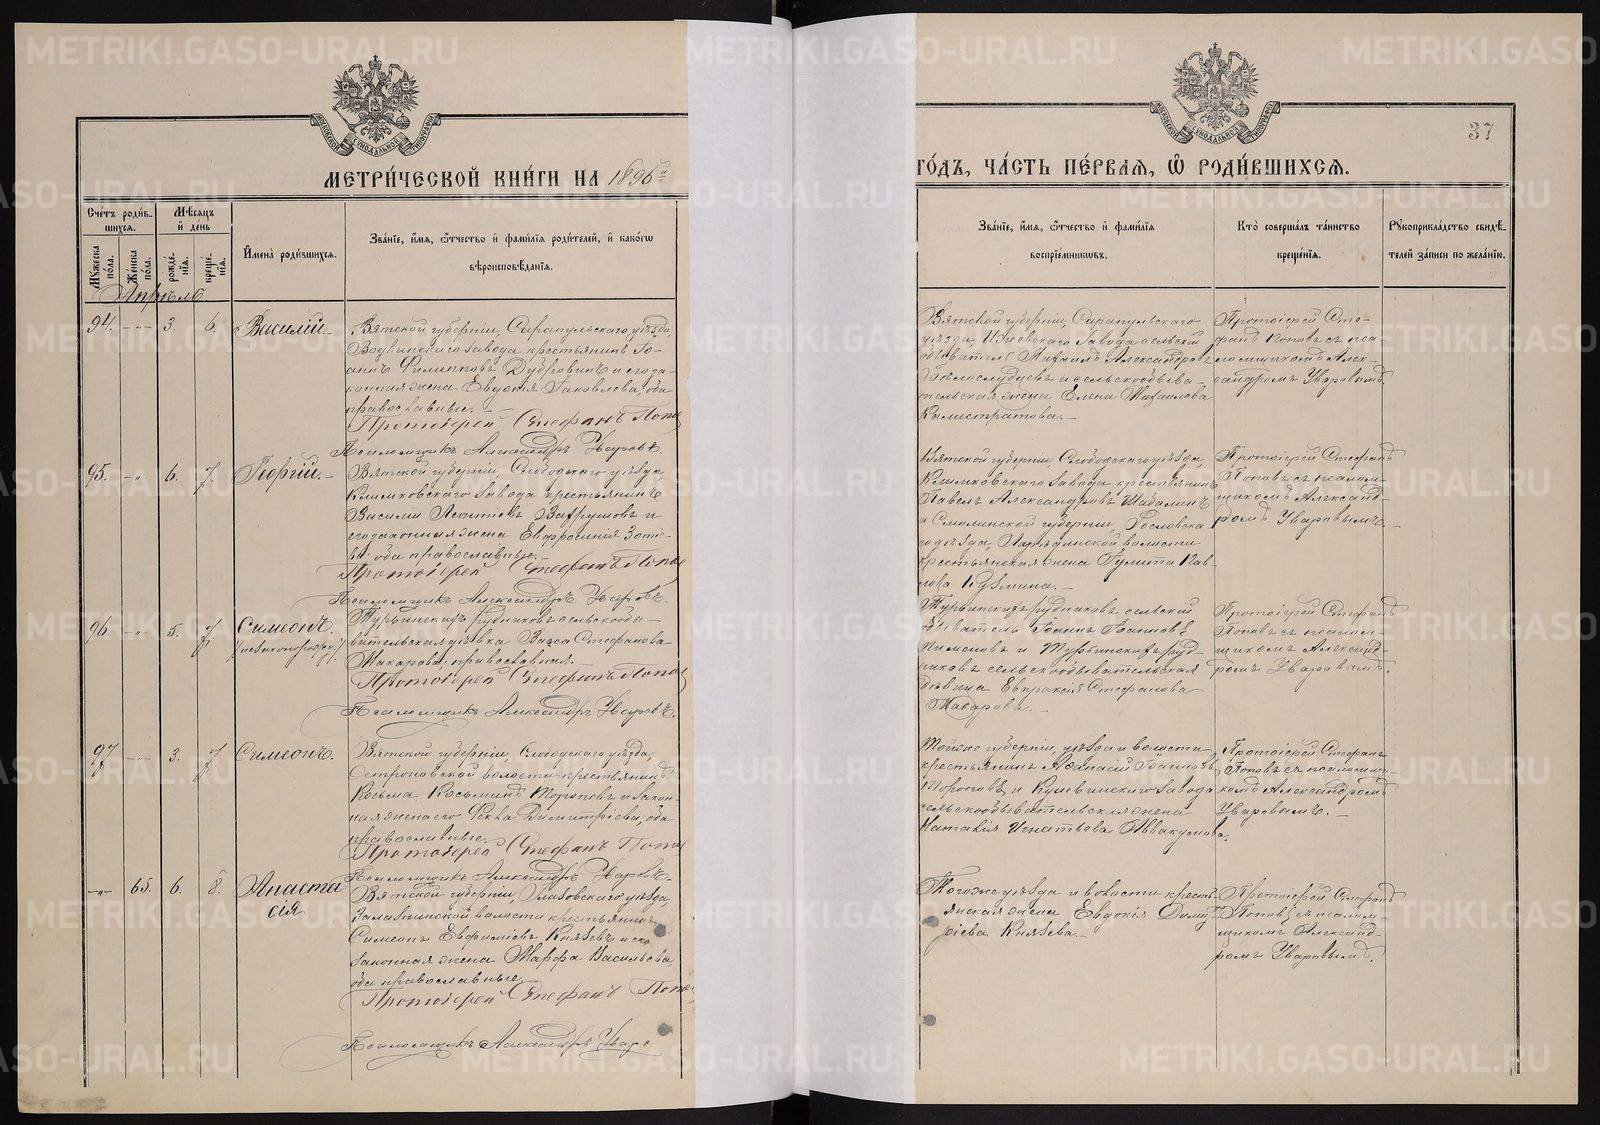 МЕТРИ́ЧЕСКОЙ КНИ́ГИ НА 1896
Сче́тъ роди́в-
шихся.
Мѣ́сяцъ
и҆ де́нь
И҆мена̀ роди́вшихся.
Зва́нїе, и҆́мя, ѻ҆́тчество и҆ фами́лїя роди́телей, и҆ како́гѡ
вѣроисповѣ́данїя.
Мꙋ́жеска
по́ла.
Же́нска
по́ла.
рожде́-
нїя.
креще́-
нїя.
Апрѣль
94. 3. 6. Василій.
Вятской губерніи, Сарапульскаго уѣзда,
Воткинскаго завода крестьянинъ Іо-
аннъ Филипповъ Дубровинъ и его за-
конная жена Евдокія Іаковлева, оба
православные.
Протоіерей Стефанъ Попов
Псаломщикъ Александръ Уваровъ.
95. 6. 7. Георгій.
Вятской губерніи, Слободскаго уѣзда
Климковскаго завода крестьянинъ
Василій Леонтіевъ Вахрушовъ и
его законная жена Евфросинія Зоті-
ева, оба православные.
Протоіерей Стефанъ Попов
Псаломщикъ Александръ Уваровъ.
96. 5. 7. Симеонъ.
Турьинскихъ рудниковъ сельскообы-
вательская дѣвка Васса Стефанова
Макарова, православная.
Протоіерей Стефанъ Попов
Псаломщикъ Александръ Уваровъ.
97 3. 7 Симеонъ.
Вятской губерніи, Слободскаго уѣзда,
волости крестьянинъ
Косьма Косьминъ Тороповъ и закон-
ная жена его Ѳекла Димитріева, оба
православные.
Протоіерей Стефанъ Попов
Псаломщикъ Александръ Уваровъ.
65. 6. 8. Анаста
сія
Вятской губерніи, Глазовскаго уѣзда,
Залазнинской волости крестьянинъ
Симеонъ Евфиміевъ Князевъ и его
законная жена Марфа Васильева,
оба православные
Протоіерей Стефанъ Попов
Псаломщикъ Александръ Уваро
37
ГО́ДЪ, ЧА́СТЬ ПЕ́РВАЯ, Ѽ РОДИ́ВШИХСЯ.
Зва́нїе, и҆́мя, ѻ҆́тчество и҆ фами́лїя
воспрїе́мникѡвъ.
Кто̀ соверша́лъ та́инство
креще́нїя.
Рꙋкоприкла́дство свидѣ́-
телей за́писи по жела́нїю.
Вятской губерніи, Сарапульскаго
уѣзда, Ижевскаго завода сельскій
обыватель Михаилъ Александровъ
Бѣлослудцевъ и сельскообыва-
тельская жена Елена Михайлова
Калистратова.
Протоіерей Сте-
фанъ Поповъ съ пса
ломщикомъ Алек-
сандромъ Уваровымъ.
Вятской губерніи, Слободскаго уѣзда,
Климковскаго завода крестьянинъ
Павелъ Александровъ Шабалинъ
и Смоленской губерніи, Рославска
го уѣзда, волости
крестьянская жена Іулита Пав-
лова Кузмина.
Протоіерей Стефанъ
Поповъ съ псалом-
щикомъ Александ-
ромъ Уваровымъ.
Турьинскихъ рудниковъ сельскій
обыватель Іоаннъ Іоанновъ
Пименовъ и Турьинскихъ руд-
никовъ сельскообывательская
дѣвица Евпраксія Стефанова
Макарова.
Протоіерей Стефанъ
Поповъ съ псалом-
щикомъ Александ-
ромъ Уваровымъ.
Тойже губерніи, уѣзда и волости
крестьянинъ Аѳанасій Іоанновъ
Тороповъ, и Кушвинскаго завода
сельскообывательская жена
Наталія Игнатьева Аввакумова.
Протоіерей Стефанъ
Поповъ съ псаломщи-
комъ Александромъ
Уваровымъ.
Тогоже уѣзда и волости кресть-
янская жена Евдокія Димит-
ріева Князева.
Протоіерей Стефанъ
Поповъ съ псалом-
щикомъ Александ-
ромъ Уваровымъ.
METRIKI.GASO-URAL.RU